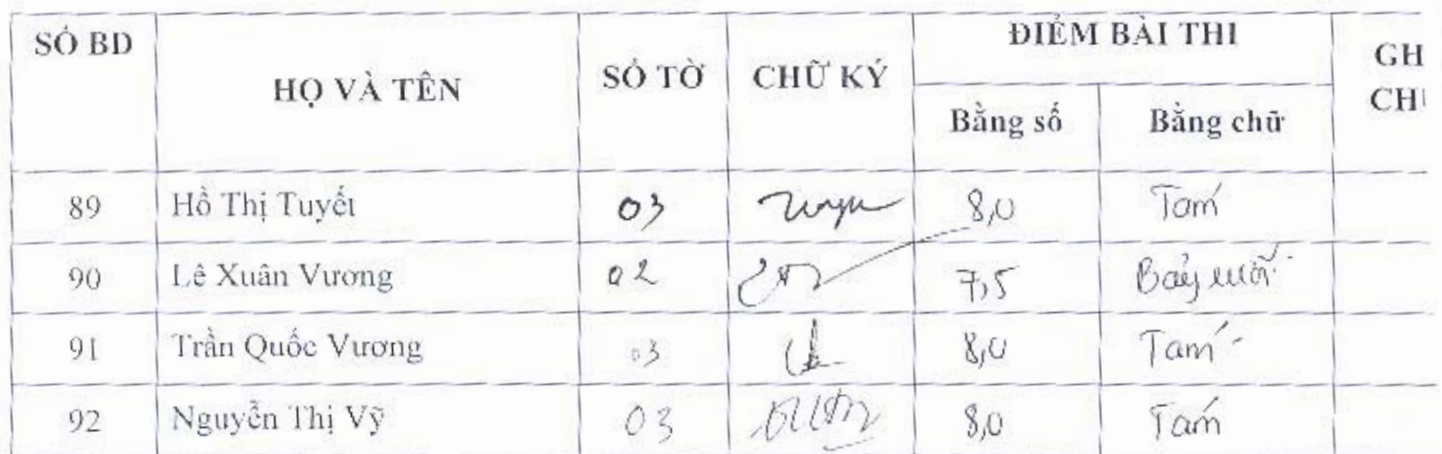 SỐ BD HỌ VÀ TÊN SỐ TỜ CHỮ KÝ ĐIỂM BÀI THI GH CH
Bằng số Bằng chữ
89 Hồ Thị Tuyết 03 8,0 Tám
90 Lê Xuân Vương 02 7,5 Bảy rưỡi
91 Trần Quốc Vương 03 8,0 Tám
92 Nguyễn Thị Vỹ 03 8,0 Tám